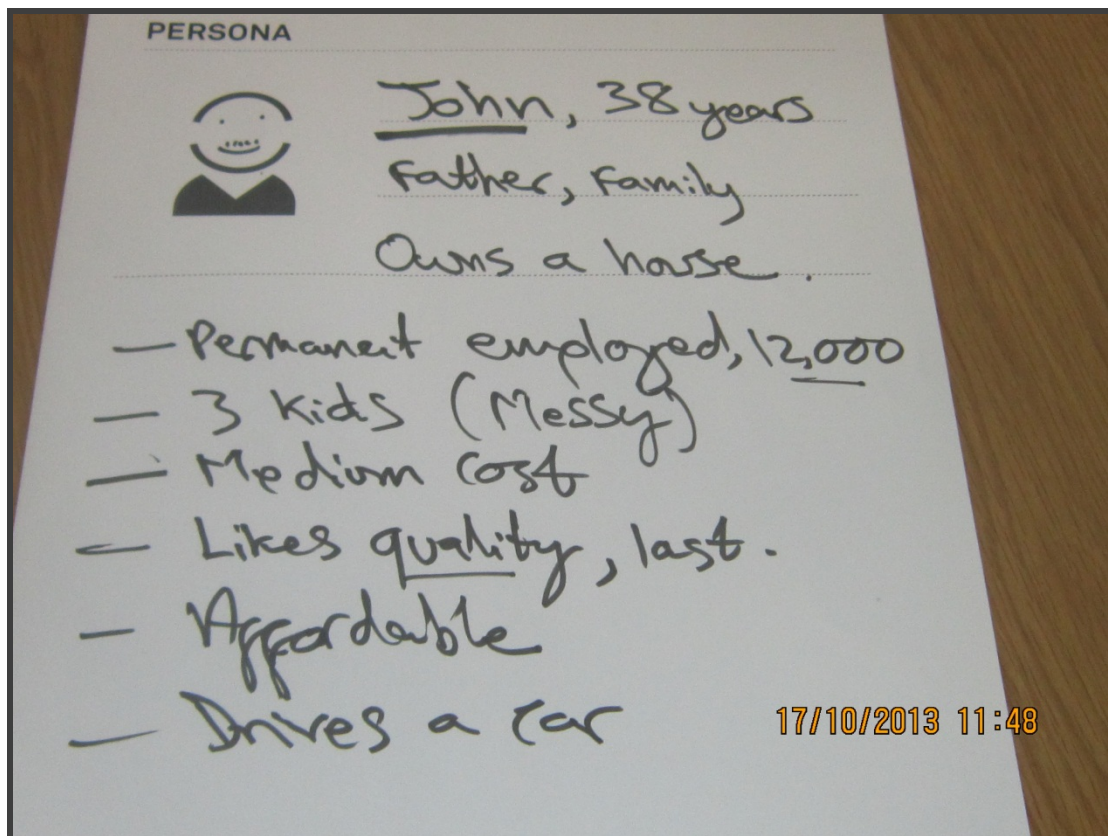 PERSONA
John, 38 years
Father, Family
Owns a house.
— Permanent employed, 12,000
— 3 Kids (Messy)
— Medium cost
— Likes quality, last.
— Affordable
— Drives a car
17/10/2013 11:48